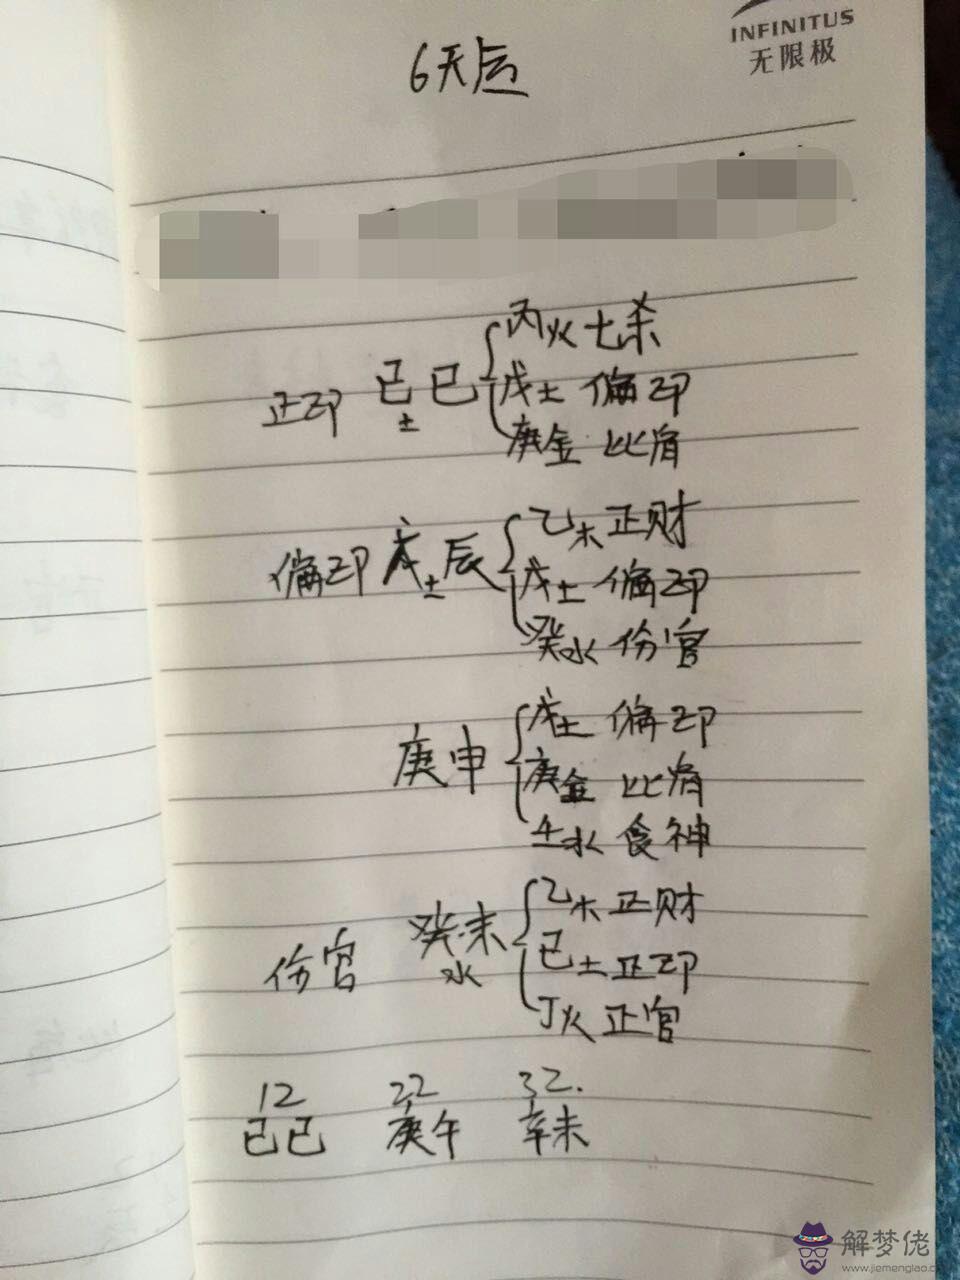 INFINITUS
无限极
6天后
丙火 七杀
正印 己巳 戊土 偏印
土
庚金 比肩
乙木 正财
偏印 戊土辰 戊土 偏印
癸水 伤官
戊土 偏印
庚申 庚金 比肩
壬水 食神
乙木 正财
伤官 癸未 己土 正印
水
丁火 正官
12 22 32.
己巳 庚午 辛未
解梦佬
www.jiemenglao.c